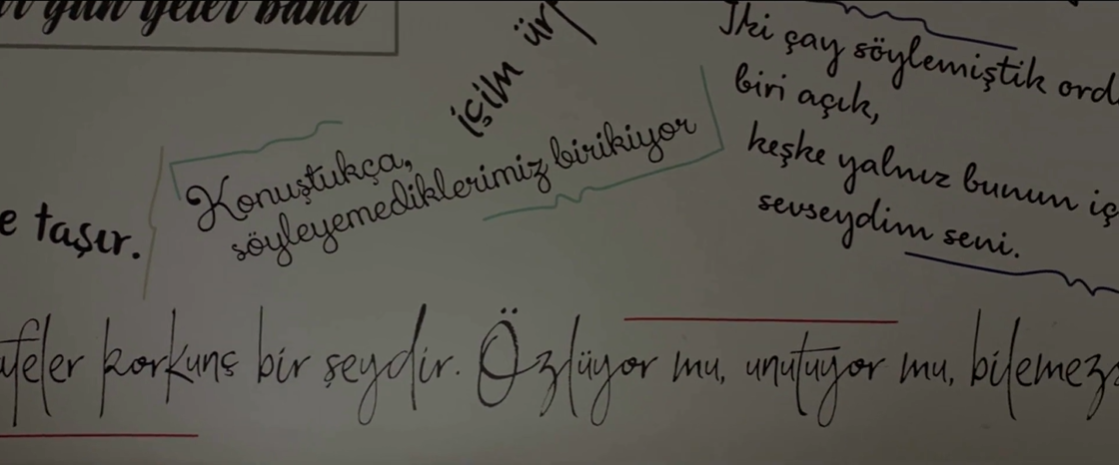 gün gelir bana
içim
İki çay söylemiştik
biri açık,
keşke yalnız bunun
sevseydim seni.
Konuştukça,
söyleyemediklerimiz birikiyor
taşır.
korkunç bir şeydir. Özlüyor mu, unutuyor mu,